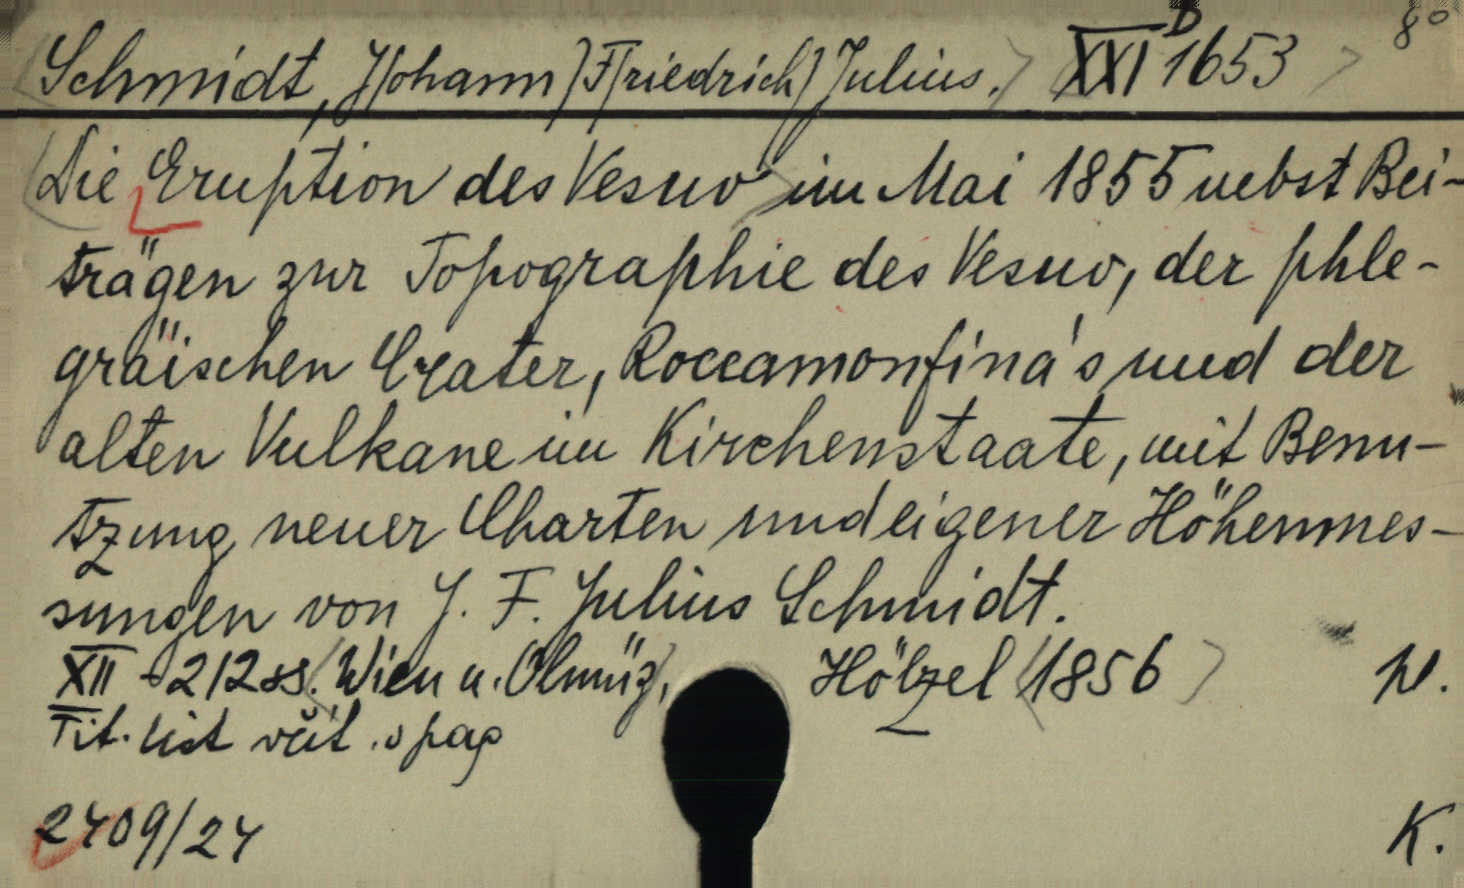 Schmidt, J/ohann/ F/riedrich/ Julius. XXI D 1653 8°
Die Eruption des Vesuv im Mai 1855 nebst Bei-
trägen zur Topographie des Vesuv, der phle-
gräischen Crater, Roccamonfina's und der
alten Vulkane im Kirchenstaate, mit Benu-
tzung neuer Charten und eigener Höhenmes-
sungen von J. F. Julius Schmidt.
XII - 212 ss. Wien u. Olmüz, Hölzel 1856
Tit. list včít. pag
2409/24 K.